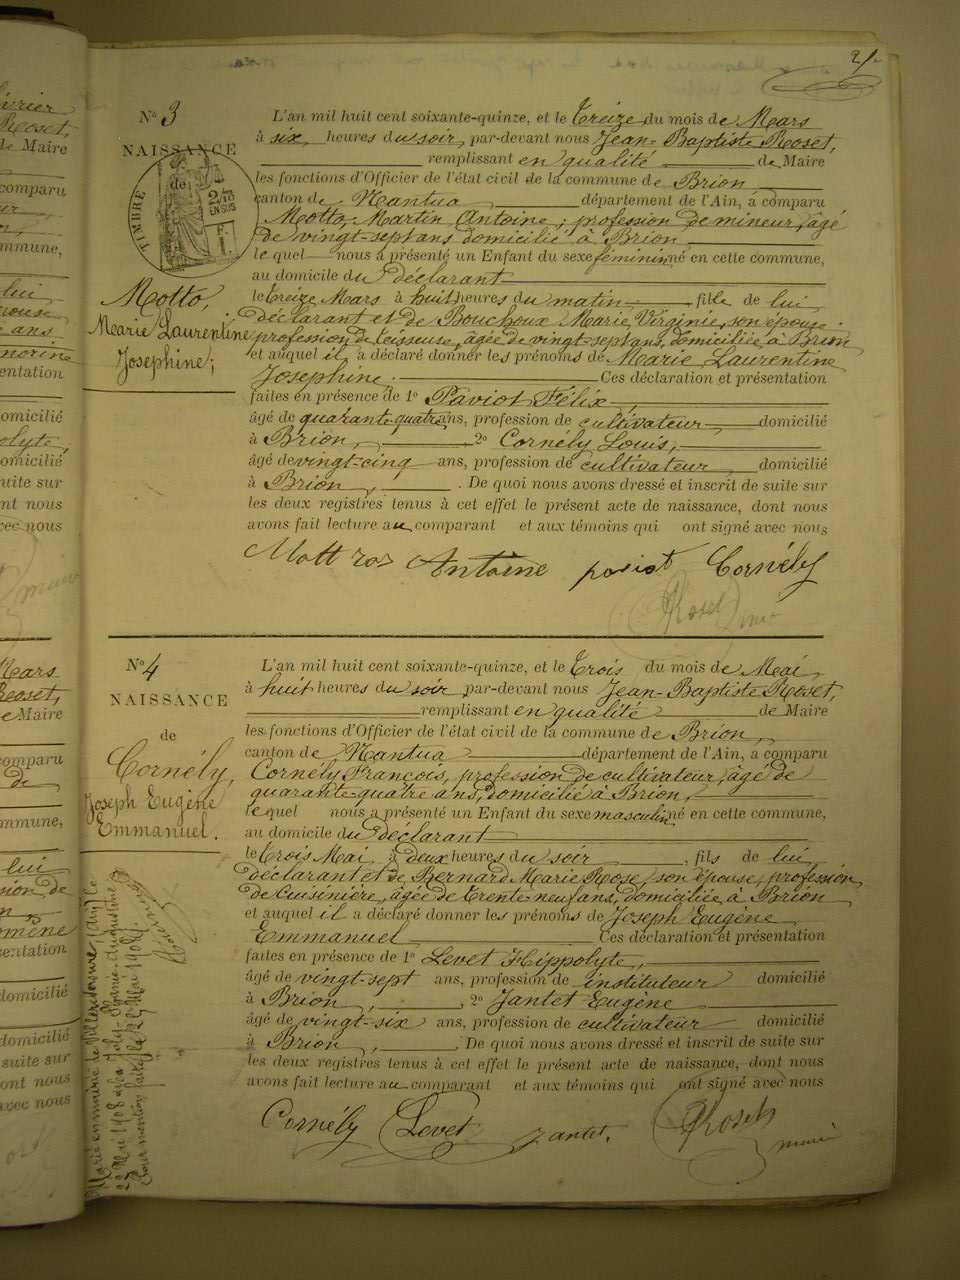 2
N° 3
NAISSANCE
de
TIMBRE
2/10
EN SUS
Motto,
Marie Laurentine
Josephine;
L'an mil huit cent soixante-quinze, et le Treize du mois de Mars
à six heures du soir, par-devant nous Jean-Baptiste Roset,
remplissant en qualité de Maire
les fonctions d'Officier de l'état civil de la commune de Brion
canton de Nantua département de l'Ain, a comparu
Motto, Martin Antoine; profession de mineur, âgé
de vingt-sept ans domicilié à Brion
lequel nous a présenté un Enfant du sexe féminin né en cette commune,
au domicile du déclarant
le treize Mars à huit heures du matin, fille de lui
déclarant et de Bouchoux Marie Virginie, son épouse
profession de tisseuse, âgée de vingt-sept ans, domiciliée à Brion
et auquel il a déclaré donner les prénoms de Marie Laurentine
Josephine. Ces déclaration et présentation
faites en présence de 1° Paviot Félix,
âgé de quarante quatre ans, profession de cultivateur domicilié
à Brion, 2° Cornély Louis,
âgé de vingt-cinq ans, profession de cultivateur, domicilié
à Brion, . De quoi nous avons dressé et inscrit de suite sur
les deux registres tenus à cet effet le présent acte de naissance, dont nous
avons fait lecture au comparant et aux témoins qui ont signé avec nous
Antoine Cornély
Roset
N° 4
NAISSANCE
de
Cornély,
Joseph Eugène
Emmanuel.
L'an mil huit cent soixante-quinze, et le Trois du mois de Mai
à huit heures du soir par-devant nous Jean-Baptiste Roset,
remplissant en qualité de Maire
les fonctions d'Officier de l'état civil de la commune de Brion,
canton de Nantua département de l'Ain, a comparu
Cornély François, profession de cultivateur, âgé de
quarante-quatre ans, domicilié à Brion,
lequel nous a présenté un Enfant du sexe masculin né en cette commune,
au domicile du déclarant
le Trois Mai à deux heures du soir, fils de lui
déclarant et de Bernard Marie Rose, son épouse, profession
de Cuisinière, âgée de trente-neuf ans, domiciliée à Brion
et auquel il a déclaré donner les prénoms de Joseph Eugène
Emmanuel Ces déclaration et présentation
faites en présence de 1° Levet Hippolyte,
âgé de vingt-sept ans, profession de instituteur domicilié
à Brion, 2° Jantet Eugène
âgé de vingt-six ans, profession de cultivateur domicilié
à Brion, . De quoi nous avons dressé et inscrit de suite sur
les deux registres tenus à cet effet le présent acte de naissance, dont nous
avons fait lecture au comparant et aux témoins qui ont signé avec nous
Cornély Levet Jantet. Roset
maire